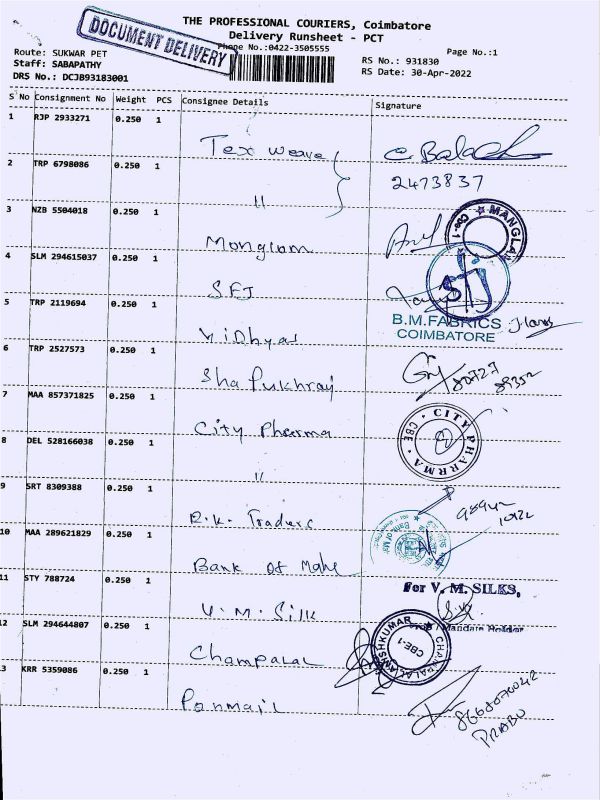 THE PROFESSIONAL COURIERS, Coimbatore
Delivery Runsheet - PCT
DOCUMENT DELIVERY
Phone No.:0422-3505555
Page No.:1
Route: SUKWAR PET
RS No.: 931830
Staff: SABAPATHY
RS Date: 30-Apr-2022
DRS No.: DCJB93183001
S No Consignment No Weight PCS Consignee Details Signature
1 RJP 2933271 0.250 1
Tex weave
2473837
2 TRP 6798086 0.250 1
"
3 NZB 5504018 0.250 1
Monglam
MANGLAM
CBE-1
4 SLM 294615037 0.250 1
SFJ
B.M.FABRICS
COIMBATORE
5 TRP 2119694 0.250 1
Vidhyas
6 TRP 2527573 0.250 1
Sha Pukhraj
80727
89352
7 MAA 857371825 0.250 1
City Pharma
CITY PHARMA
CBE
8 DEL 528166038 0.250 1
"
9 SRT 8309388 0.250 1
R.K. Traders
10 MAA 289621829 0.250 1
Bank of Mahe
11 STY 788724 0.250 1
V. M. Silk
For V. M. SILKS,
12 SLM 294644807 0.250 1
Champalal
CBE-1
13 KRR 5359086 0.250 1
Panmail
8668070042
PRABU